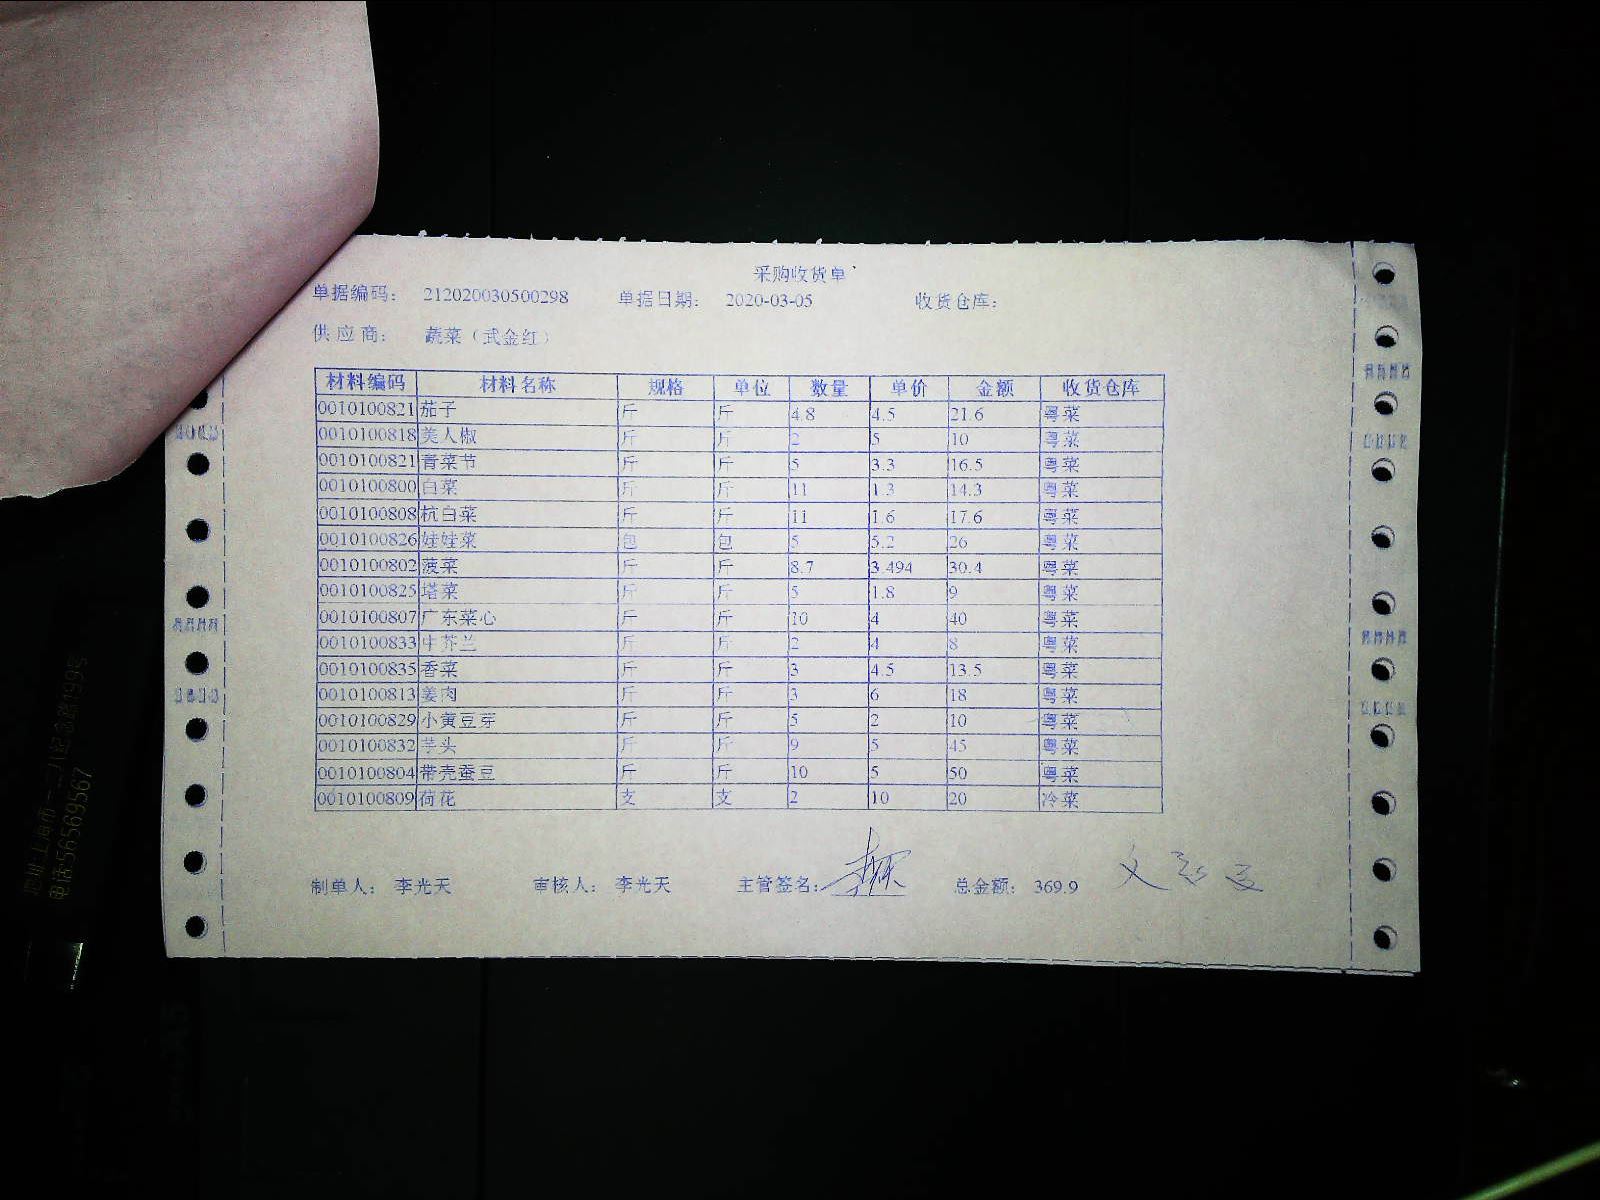 采购收货单
单据编码： 212020030500298 单据日期： 2020-03-05 收货仓库：
供应商： 蔬菜（武金红）
材料编码 材料名称 规格 单位 数量 单价 金额 收货仓库
0010100821 茄子 斤 斤 4.8 4.5 21.6 粤菜
0010100818 美人椒 斤 斤 2 5 10 粤菜
0010100821 青菜节 斤 斤 5 3.3 16.5 粤菜
0010100800 白菜 斤 斤 11 1.3 14.3 粤菜
0010100808 杭白菜 斤 斤 11 1.6 17.6 粤菜
0010100826 娃娃菜 包 包 5 5.2 26 粤菜
0010100802 菠菜 斤 斤 8.7 3.494 30.4 粤菜
0010100825 塔菜 斤 斤 5 1.8 9 粤菜
0010100807 广东菜心 斤 斤 10 4 40 粤菜
0010100833 中芥兰 斤 斤 2 4 8 粤菜
0010100835 香菜 斤 斤 3 4.5 13.5 粤菜
0010100813 姜肉 斤 斤 3 6 18 粤菜
0010100829 小黄豆芽 斤 斤 5 2 10 粤菜
0010100832 芋头 斤 斤 9 5 45 粤菜
0010100804 带壳蚕豆 斤 斤 10 5 50 粤菜
0010100809 荷花 支 支 2 10 20 冷菜
制单人： 李光天 审核人： 李光天 主管签名： 总金额： 369.9
电话56569567